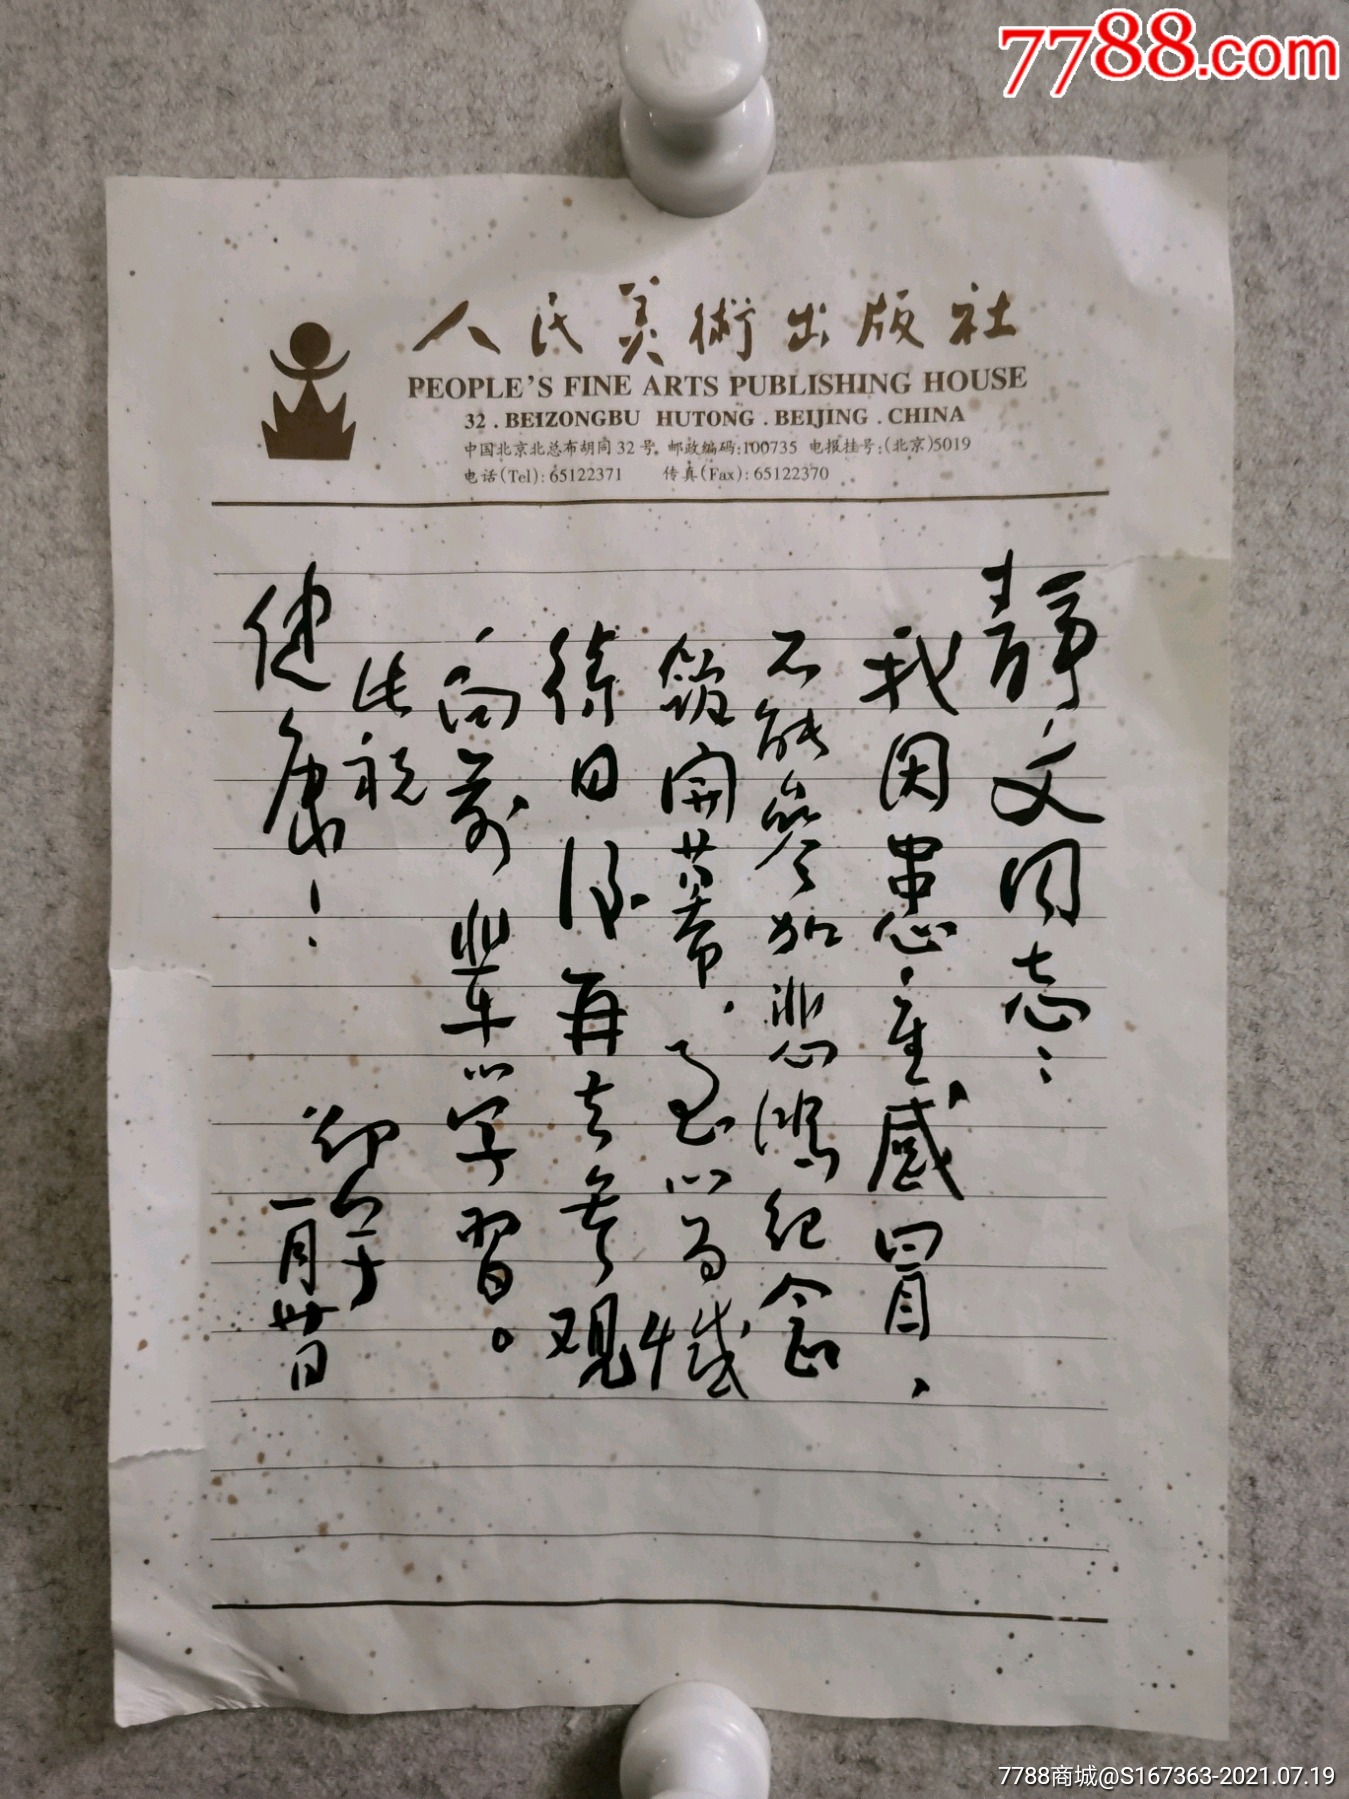 7788.com
人民美術出版社
PEOPLE'S FINE ARTS PUBLISHING HOUSE
32 . BEIZONGBU HUTONG . BEIJING . CHINA
中国北京北总布胡同32号。邮政编码:100735 电报挂号:(北京)5019
电话(Tel): 65122371 传真(Fax): 65122370
靜文同志：
我因患重感冒，
不能参加悲鸿纪念
馆開幕，至以为憾
待日後再去参观
向前辈学習。
此祝
健康！
一月廿日
7788商城@S167363-2021.07.19